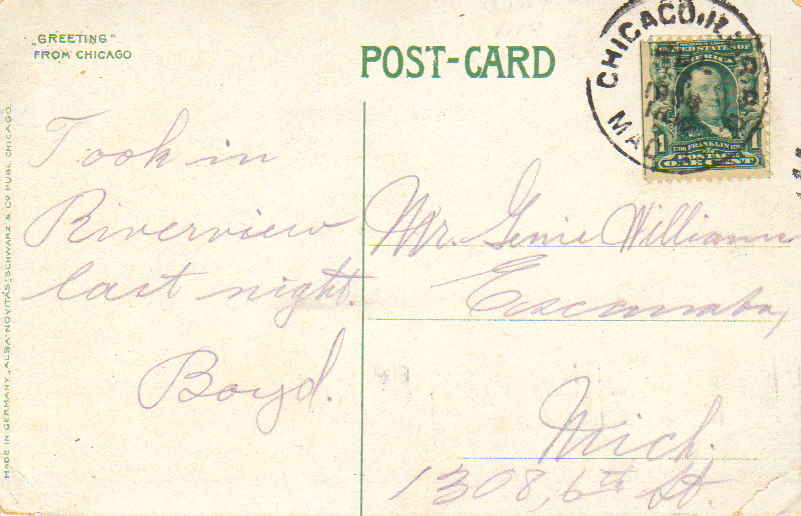 „GREETING"
FROM CHICAGO
POST-CARD
CHICAGO, ILL.
MAD
UNITED STATES OF AMERICA
1 FRANKLIN 1
POSTAGE
ONE CENT
Took in
Riverview
last night.
Boyd.
Mr. Genie Williams
Escanaba,
Mich.
1308, 6th St.
MADE IN GERMANY „ALBA-NOVITAS" SCHWARZ & CO PUBL. CHICAGO.